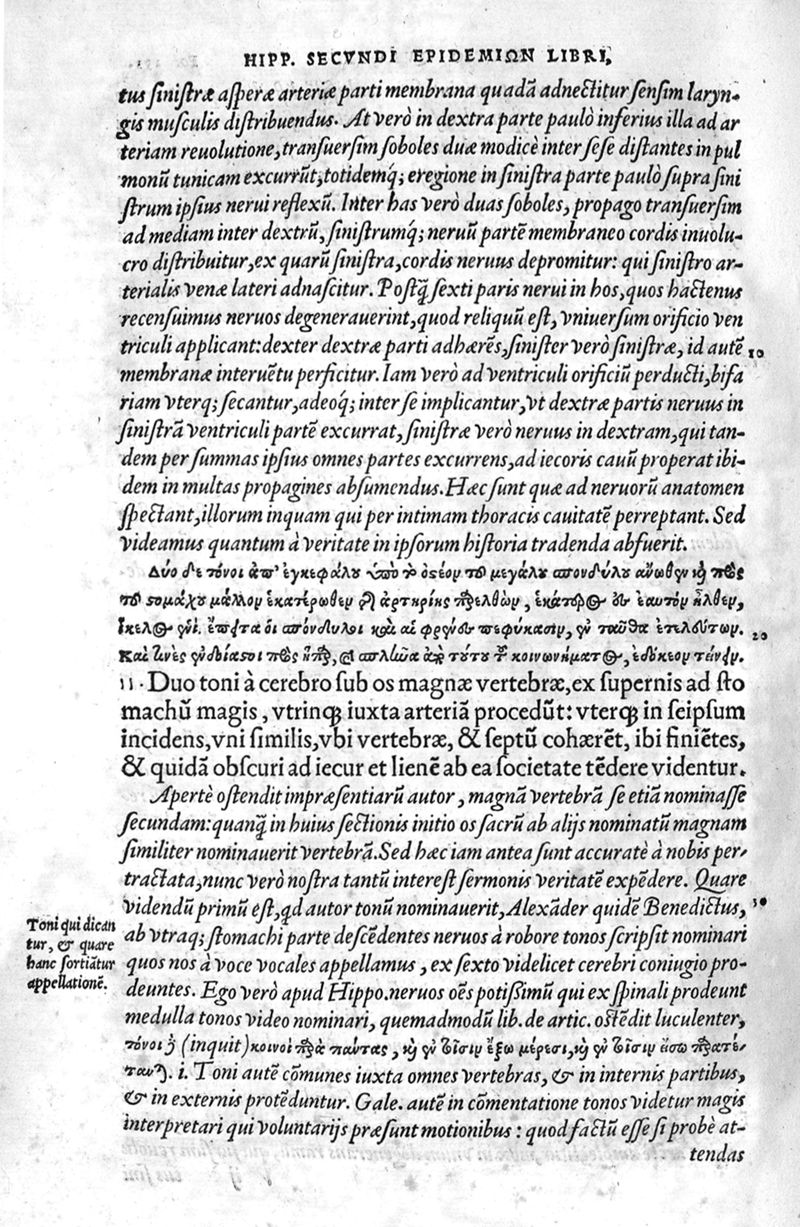 HIPP. SECVNDI EPIDEMIΩN LIBRI,
tus sinistræ asperæ arteriæ parti membrana quadā adnectitur sensim laryn-
gis musculis distribuendus. At verò in dextra parte paulò inferius illa ad ar
teriam reuolutione, transuersim soboles duæ modicè inter sese distantes in pul
monū tunicam excurrūt, totidemq́; eregione in sinistra parte paulò supra sini
strum ipsius nerui reflexū. Inter has verò duas soboles, propago transuersim
ad mediam inter dextrū, sinistrumq́; neruū partē membraneo cordis inuolu-
cro distribuitur, ex quarū sinistra, cordis neruus depromitur: qui sinistro ar-
terialis venæ lateri adnascitur. Postq̃ sexti paris nerui in hos, quos hactenus
recensuimus neruos degenerauerint, quod reliquū est, vniuersum orificio ven
triculi applicant: dexter dextræ parti adhærēs, sinister verò sinistræ, id autē 10
membranæ interuētu perficitur. Iam verò ad ventriculi orificiū perducti, bifa
riam vterq; secantur, adeoq́; inter se implicantur, vt dextræ partis neruus in
sinistrā ventriculi partē excurrat, sinistræ verò neruus in dextram, qui tan-
dem per summas ipsius omnes partes excurrens, ad iecoris cauū properat ibi-
dem in multas propagines absumendus. Hæc sunt quæ ad neruorū anatomen
spectant, illorum inquam qui per intimam thoracis cauitatē perreptant. Sed
videamus quantum à veritate in ipsorum historia tradenda abfuerit.
Δύο δε τόνοι ἀπ' ἐγκεφάλου ὑπὸ τὸ ὀστέον τοῦ μεγάλου σπονδύλου ἄνωθεν καὶ πρὸς
τοῦ στομάχου μᾶλλον ἑκατέρωθεν τῆς ἀρτηρίης παρελθὼν, ἑκάτερος ἐς ἑαυτὸν ἦλθεν,
ἴκελος ἑνί. ἔπειτα οἱ σπόνδυλοι καὶ αἱ φρένες πεφύκασιν, ἐν ταῦθα ἐτελεύτων. 20
Καὶ τινὲς ἐνδιαστοι πρὸς ἧπαρ, καὶ σπλῆνα ἀπὸ τούτου τοῦ κοινωνήματος, ἐδόκεον τείνειν.
11. Duo toni à cerebro sub os magnæ vertebræ, ex supernis ad sto
machū magis, vtrinq; iuxta arteriā procedūt: vterq; in seipsum
incidens, vni similis, vbi vertebræ, & septū cohærēt, ibi finiētes,
& quidā obscuri ad iecur et lienē ab ea societate tēdere videntur.
Apertè ostendit impræsentiarū autor, magnā vertebrā se etiā nominasse
secundam: quanq̃ in huius sectionis initio os sacrū ab alijs nominatū magnam
similiter nominauerit vertebrā. Sed hæc iam antea sunt accuratè à nobis per-
tractata, nunc verò nostra tantū interest sermonis veritatē expēdere. Quare
videndū primū est, qd autor tonū nominauerit, Alexāder quidē Benedictus, 30
ab vtraq; stomachi parte descēdentes neruos à robore tonos scripsit nominari
quos nos à voce vocales appellamus, ex sexto videlicet cerebri coniugio pro-
deuntes. Ego verò apud Hippo. neruos oēs potissimū qui ex spinali prodeunt
medulla tonos video nominari, quemadmodū lib. de artic. ostēdit luculenter,
τόνοι δὲ (inquit) κοινοὶ παρὰ πάντας, καὶ ἐν τοῖσιν ἔξω μέρεσι, καὶ ἐν τοῖσιν ἔσω παρατέ-
τανται. i. Toni autē cōmunes iuxta omnes vertebras, & in internis partibus,
& in externis protēduntur. Gale. autē in cōmentatione tonos videtur magis
interpretari qui voluntarijs præsunt motionibus: quod factū esse si probè at-
tendas
Toni qui dican
tur, & quare
hanc sortiātur
appellationē.